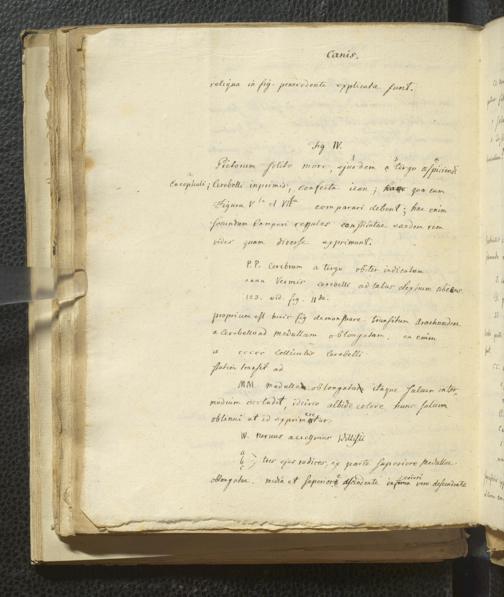 Canis.
reliqua in fig. praecedente explicata sunt.
Fig. IV.
Pictorum solito more, ejusdem a tergo aspiciendi
Encephali; Cerebelli inprimis, confecta icon; quae cum
Figura V ta et VIta comparari debent; hae enim
secundum Camperi regulas constitutae eandem rem
vides quam diverse exprimunt.
P.P. Cerebrum a tergo obiter indicatum
nnnn Vermis cerebelli, ad latus dextrum
123. vid. fig. II da.
proprium est huic fig demonstrare transitum Arachnoideae
a Cerebello ad medullam oblongatam. ea enim
a ccccc Colliculis Cerebelli
statim transit ad
MM. medullam oblongatam itaque sulcum inter-
medium occludit, idcirco albido colore hunc sulcum
obtinui ut id exprimeretur.
W. Nervus accessorius Willisii
a b c tres ejus radices, ex parte superiore Medullae
oblongatae. media et superiore descendente inferiori vero descendente